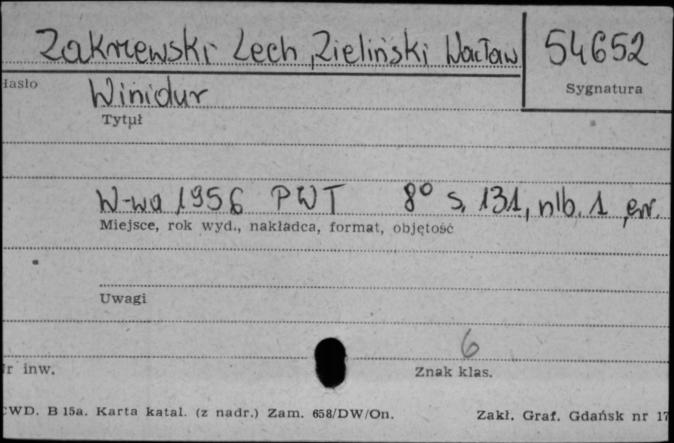 Zakrzewski Lech, Zieliński Wacław 54652
Hasło Sygnatura
Winidur
Tytuł
W-wa 1956 PWT 8° s. 131, nlb. 1, err.
Miejsce, rok wyd., nakładca, format, objętość
Uwagi
6
Nr inw. Znak klas.
CWD. B 15a. Karta katal. (z nadr.) Zam. 658/DW/On. Zakł. Graf. Gdańsk nr 17